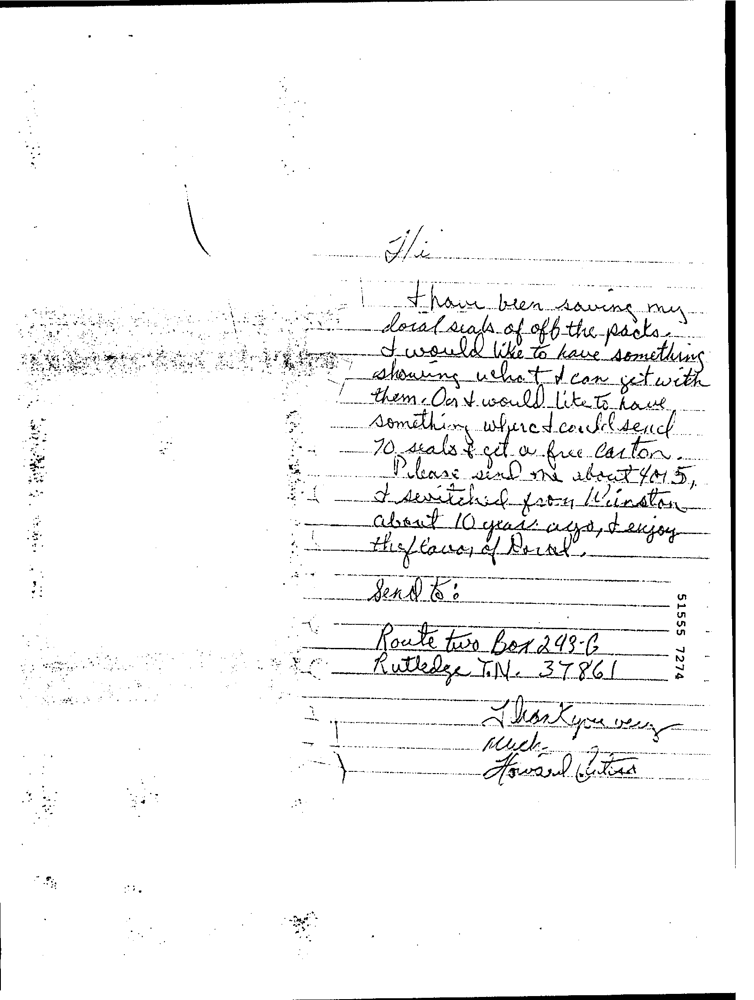 Hi
I have been saving my
doral seals of off the packs.
I would like to have something
showing what I can get with
them. Or I would like to have
something where I could send
70 seals & get a free carton.
Please send me about 4 or 5,
I switched from Winston
about 10 years ago, I enjoy
the flavor of Doral.
Send to:
Route two Box 293-G
Rutledge T.N. 37861
Thank you very
much
Howard
51555 7274